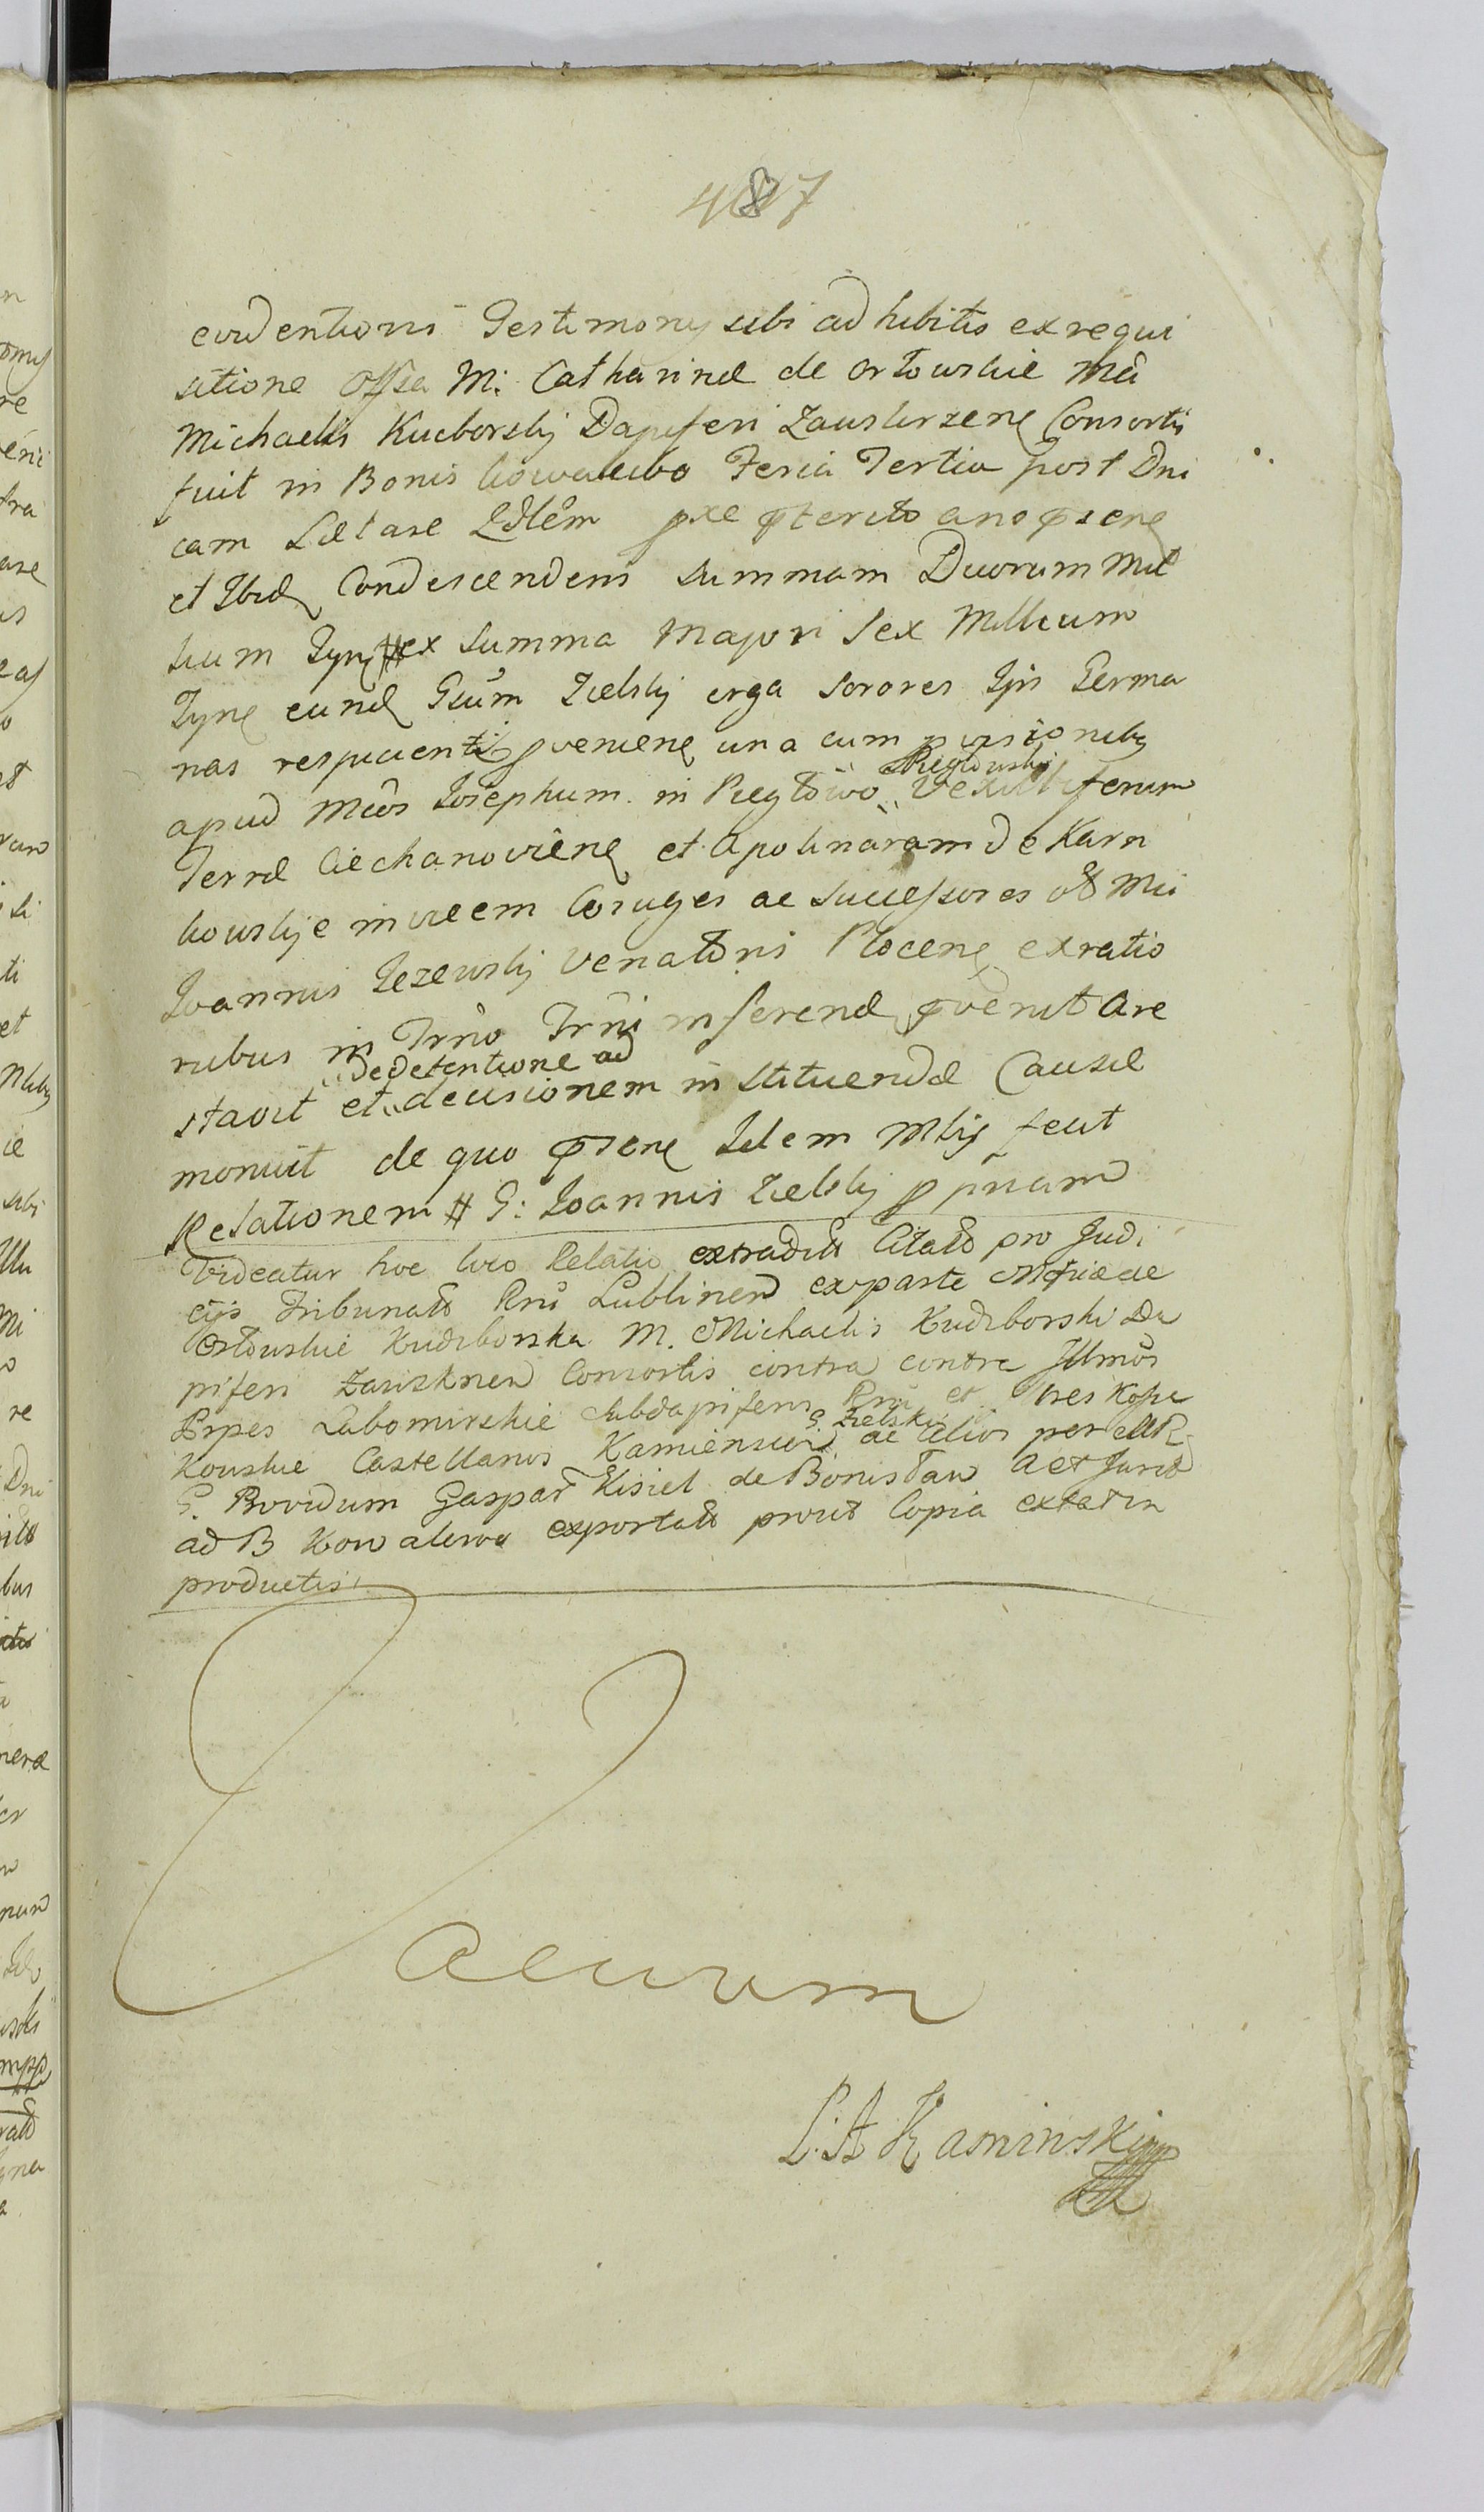 487
evidentioris Testimonij sibi adhibitis ex requi
sitione Offsa M: Catharinæ de Ortowskie Mci
Michaelis Kucborskj Dapiferi Zauskrzen Consortis
fuit in Bonis Kowalewo Feria Tertia post Dni
cam Lætare pxe pterito ano psen
et Ibid Condescendens summam Duorum Mil
lium Tyn # ex summa Majori Sex Millium
Tyn eund Gsum Zielskj erga sorores Ipis Germa
nas respicienti pvenien una cum pvisionibus
apud Mcos Josephum in Regłowo Regłowski Vexilliferum
Terræ Ciechanovien et Apolinaram de Karn
kowskje invicem Coniuges ac Successores olt Mci
Joannis Jezewskj Venatoris Plocen ex ratio
nibus in Trno Trni inferend pvenit Are
stavit et de detentione ad decisionem instituendæ Causæ
monuit de quo psen Idem Mlis fecit
Relationem # G: Joannis Zielskj ppriam
Videatur hoc loco Relatio extradit Citatt pro Judi
cijs Tribunatt Rni Lublinen ex parte de
Ortowskie Kudzborska M. Michaelis Kudzborski Da
piferi Zawszknen Consortis contra contra Illmos
Prpes Lubomirskie Subdapiferis Rni et tres Kopu
kouskie Castellanis Kamienscen G Zielski ac alios per M R
G. Providum Gaspar Kisiel de Bonislaw Act Jurid
ad B Kowalewo exportatt prout Copia extat in
productis
Vacuum
L: A Kaminski mp